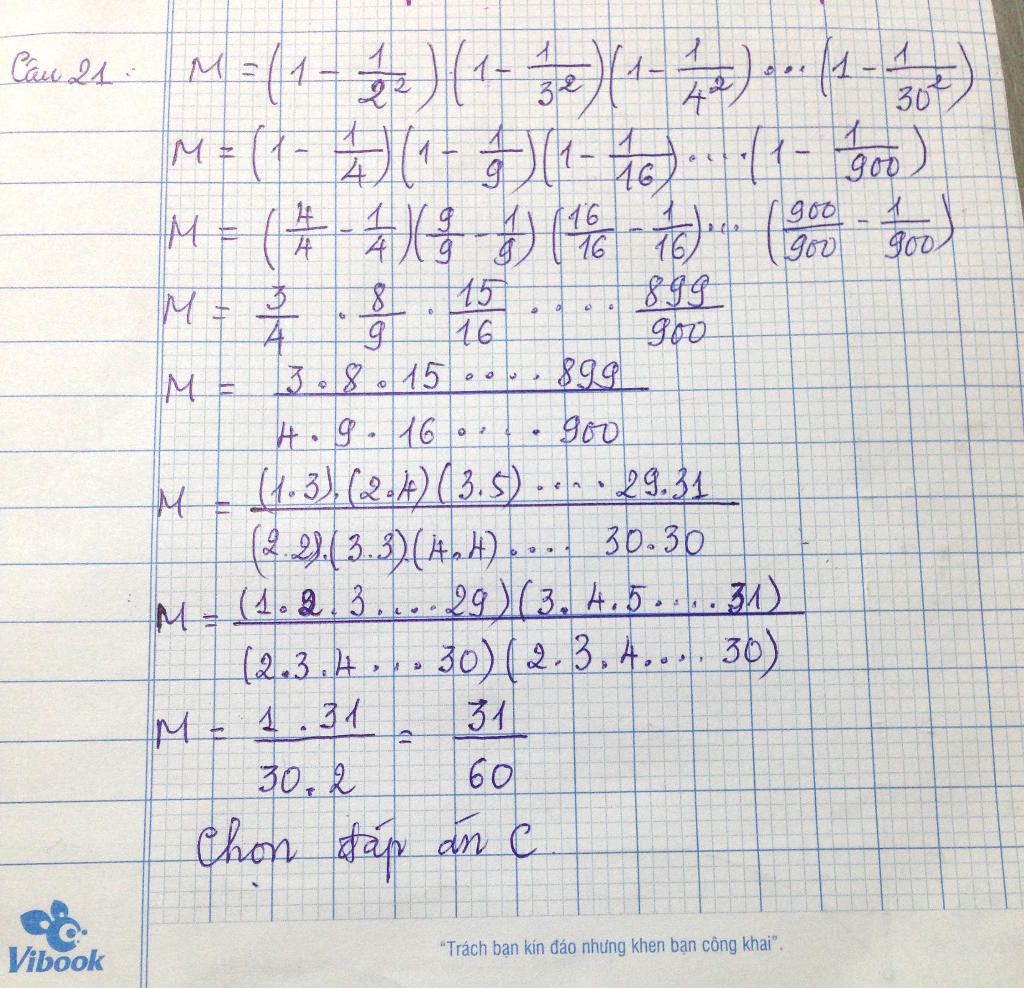 Câu 21 : M = (1 - 1/2²).(1 - 1/3²)(1 - 1/4²)....(1 - 1/30²)
M = (1 - 1/4)(1 - 1/9)(1 - 1/16).....(1 - 1/900)
M = (4/4 - 1/4)(9/9 - 1/9)(16/16 - 1/16)...(900/900 - 1/900)
M = 3/4 . 8/9 . 15/16 ..... 899/900
M = (3.8.15.....899)/(4.9.16.....900)
M = ((1.3).(2.4)(3.5).....29.31)/((2.2).(3.3).(4.4).....30.30)
M = ((1.2.3....29)(3.4.5.....31))/((2.3.4....30)(2.3.4....30))
M = (1.31)/(30.2) = 31/60
Chọn đáp án C.
Vibook
"Trách bạn kín đáo nhưng khen bạn công khai".